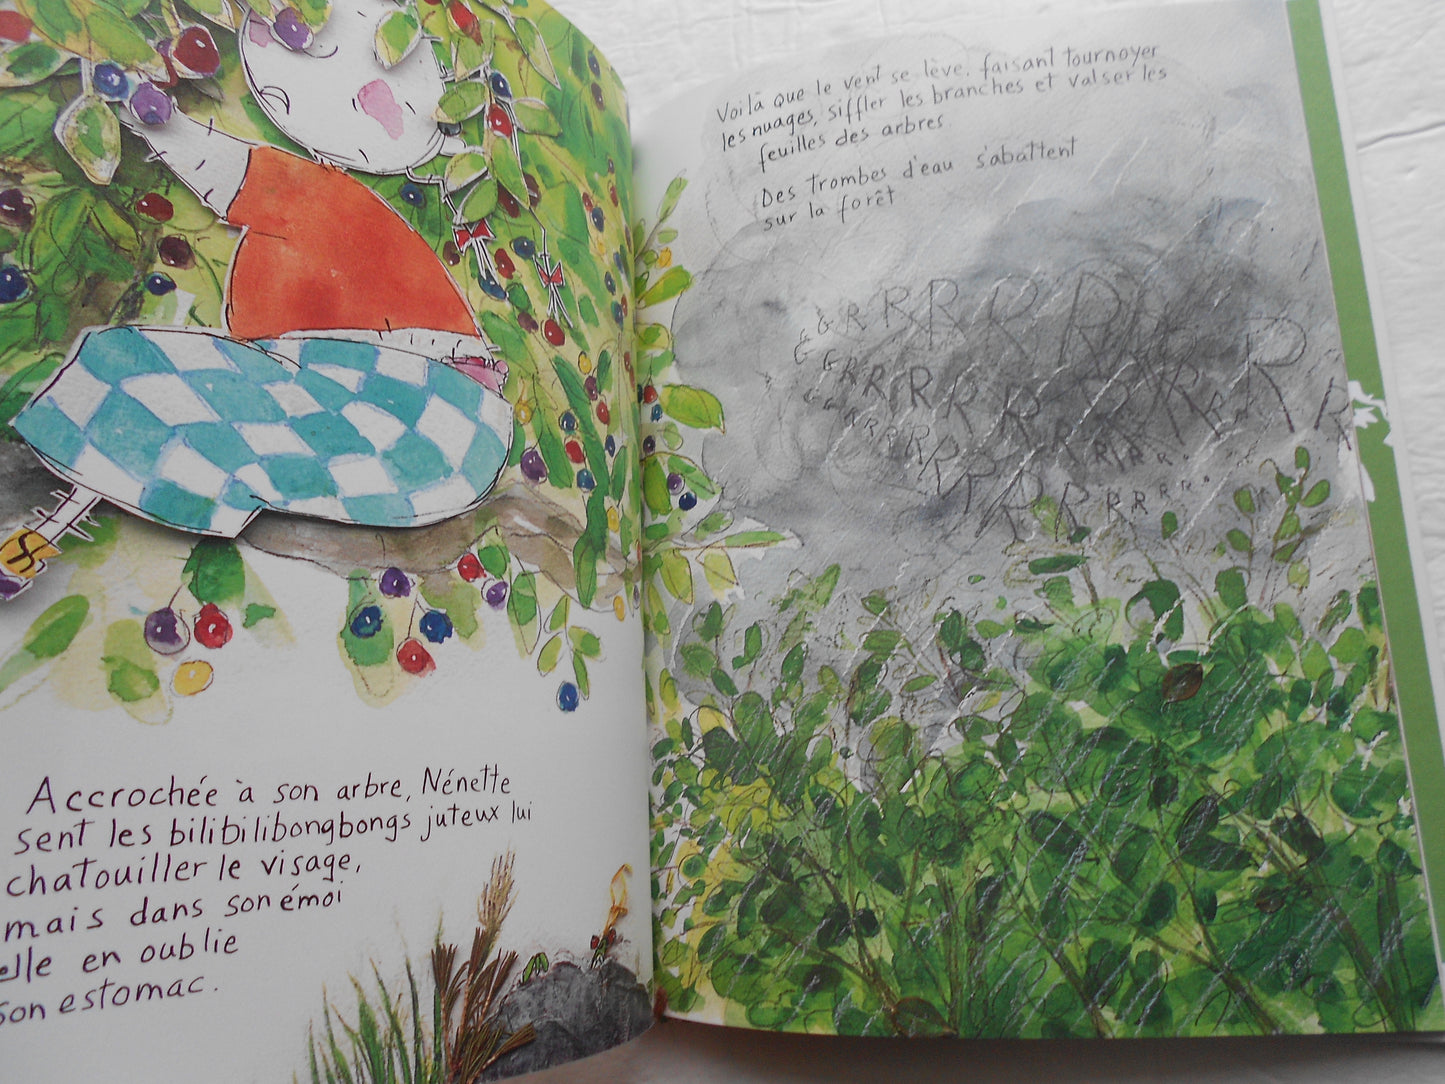 Accrochée à son arbre, Nénette
sent les bilibilibongbongs juteux lui
chatouiller le visage,
mais dans son émoi
elle en oublie
son estomac.
Voilà que le vent se lève, faisant tournoyer
les nuages, siffler les branches et valser les
feuilles des arbres
Des trombes d'eau s'abattent
sur la forêt